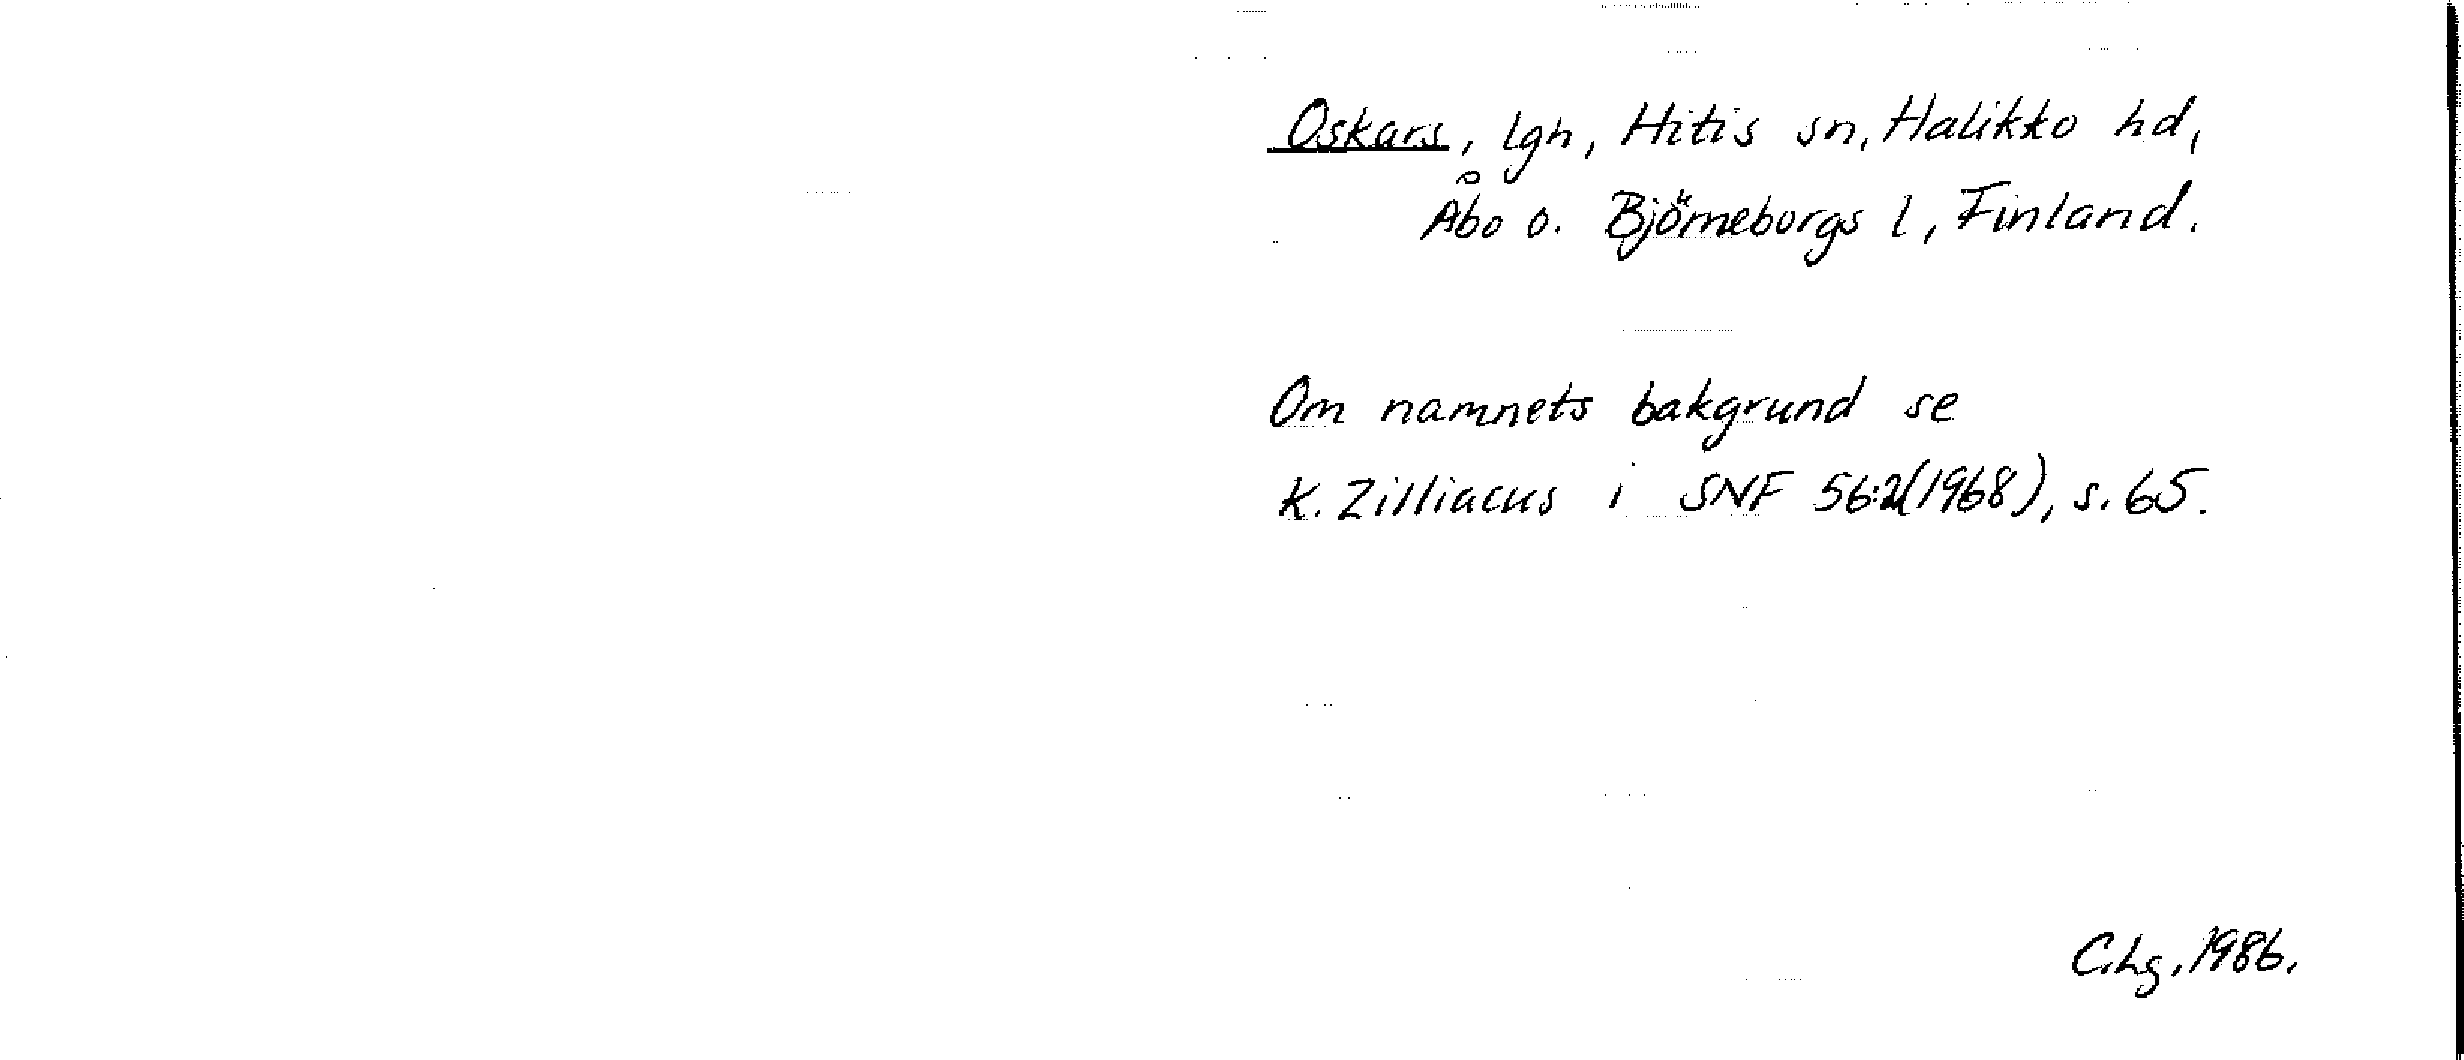 Oskars, lgh, Hitis sn, Halikko hd,
Åbo o. Björneborgs l, Finland.
Om namnets bakgrund se
K. Zilliacus i SNF 56:2(1968), s. 65.
C.Lg, 1986.